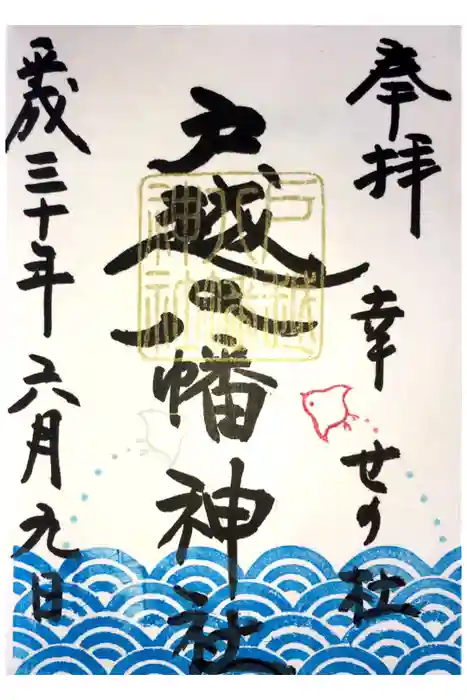 奉拝
幸せの社
戸越八幡神社
戸越八幡神社
平成三十年六月九日